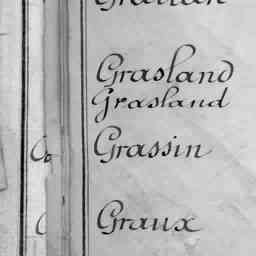 Grasland
Grasland
Grassin
Graux